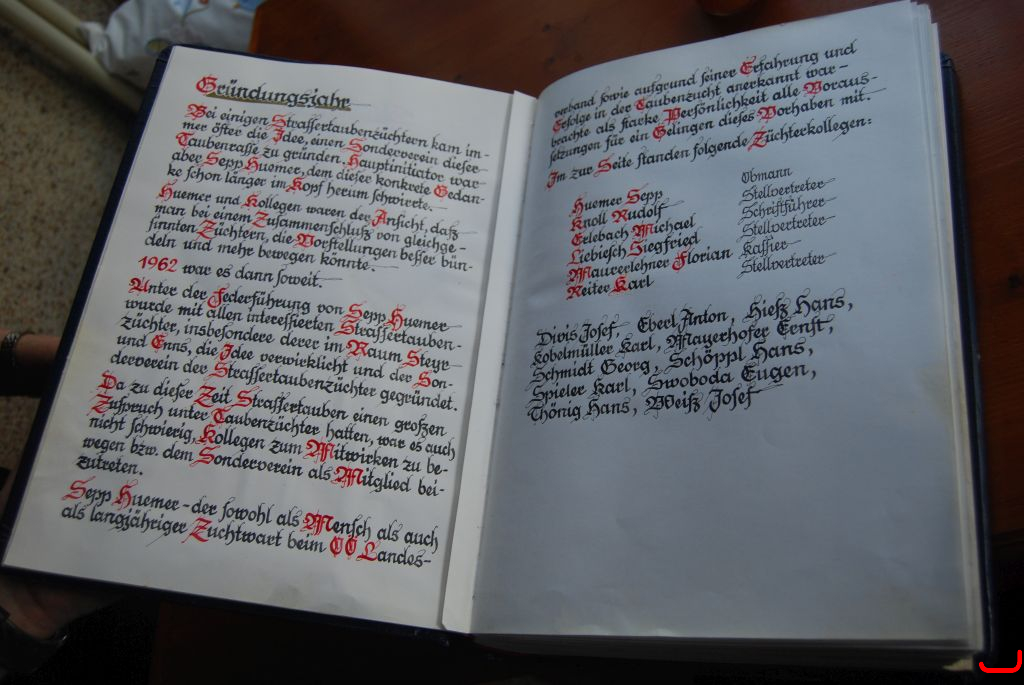 Gründungsjahr
Bei einigen Straſſertaubenzüchtern kam im-
mer öfter die Idee, einen Sonderverein dieser
Taubenraſſe zu gründen. Hauptinitiator war
aber Sepp Huemer, dem dieser konkrete Gedan-
ke ſchon länger im Kopf herum ſchwirrte.
Huemer und Kollegen waren der Anſicht, daß
man bei einem Zuſammenſchluß von gleichge-
ſinnten Züchtern, die Vorſtellungen beſſer bün-
deln und mehr bewegen könnte.
1962 war es dann ſoweit.
Unter der Federführung von Sepp Huemer
wurde mit allen intereſſierten Straſſertauben-
züchter, insbeſondere derer im Raum Steyr
und Enns, die Idee verwirklicht und der Son-
derverein der Straſſertaubenzüchter gegründet.
Da zu dieſer Zeit Straſſertauben einen großen
Zuſpruch unter Taubenzüchter hatten, war es auch
nicht ſchwierig, Kollegen zum Mitwirken zu be-
wegen bzw. dem Sonderverein als Mitglied bei-
zutreten.
Sepp Huemer - der ſowohl als Menſch als auch
als langjähriger Zuchtwart beim OÖ Landes-
verband ſowie aufgrund ſeiner Erfahrung und
Erfolge in der Taubenzucht anerkannt war -
brachte als ſtarke Perſönlichkeit alle Voraus-
ſetzungen für ein Gelingen dieſes Vorhaben mit.
Im zur Seite ſtanden folgende Züchterkollegen:
Huemer Sepp Obmann
Knoll Rudolf Stellvertreter
Erlebach Michael Schriftführer
Liebiſch Siegfried Stellvertreter
Maurerlehner Florian Kaſſier
Reiter Karl Stellvertreter
Divis Joſef, Eberl Anton, Hieß Hans,
Kobelmüller Karl, Mayerhofer Ernſt,
Schmidt Georg, Schöppl Hans,
Spieler Karl, Swoboda Eugen,
Thönig Hans, Weiß Joſef